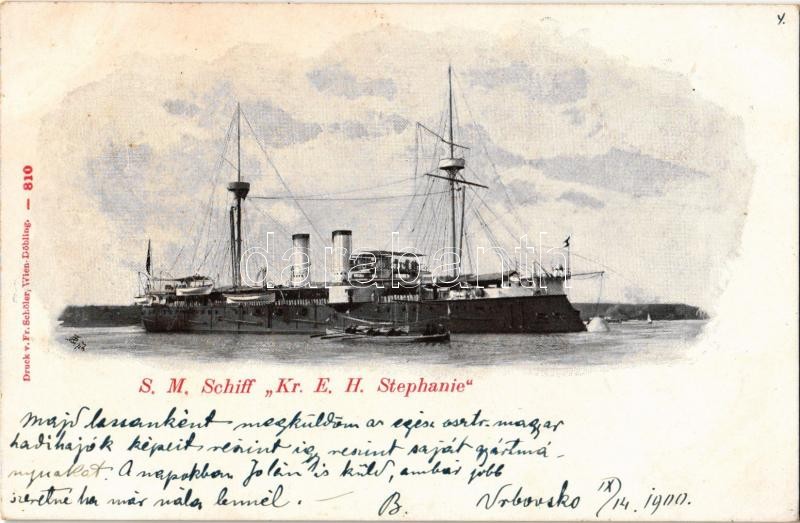 Y.
Druck v. Fr. Schöler, Wien-Döbling. — 810
darabanth
S. M. Schiff „Kr. E. H. Stephanie“
Majd lassanként megküldöm az egész osztr. magyar
hadihajók képeit részint igy részint saját gyártmá-
nyuakat. A napokban Jolán is küld, ambár jobb
szeretné ha már nála lennél. —
B.
Vrbovsko IX/14. 1900.